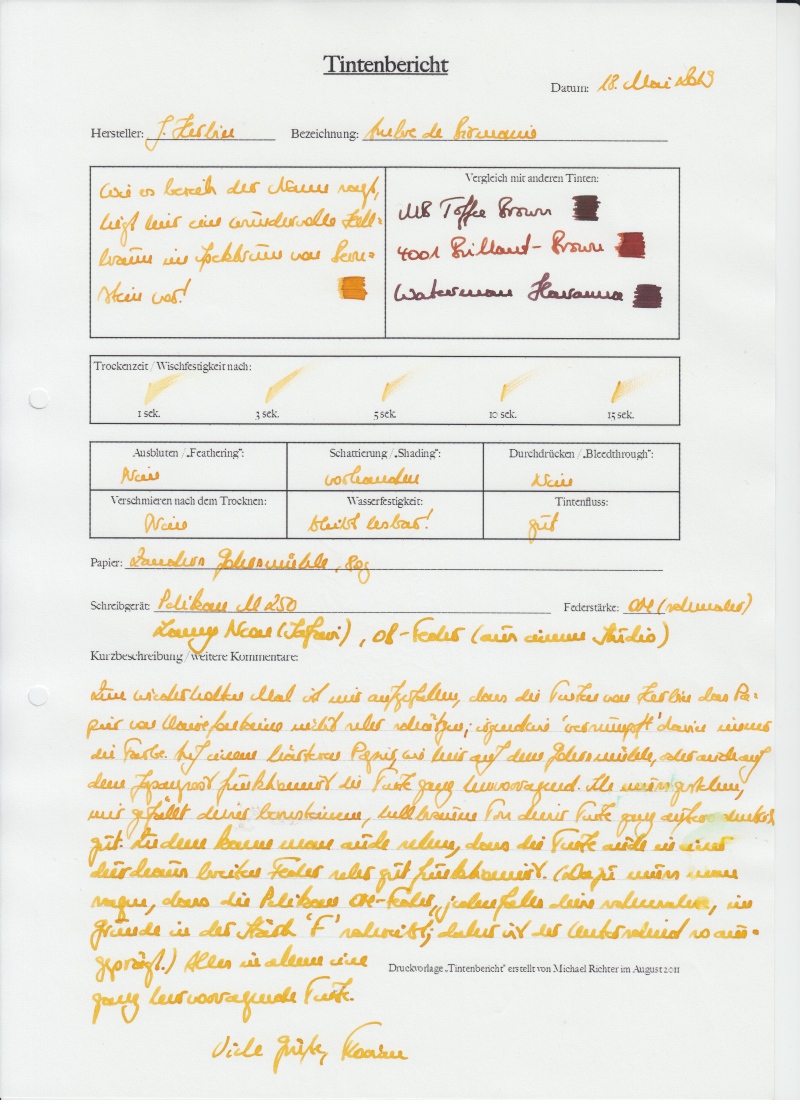 Tintenbericht
Datum: 18. Mai 2013
Hersteller: J. Herbin Bezeichnung: Ambre de Birmanie
Wie es bereits der Name sagt,
liegt hier eine wundervolle Hell-
braun im
von Bern-
stein vor!
Vergleich mit anderen Tinten:
MB Toffee Brown
4001 Brillant-Brown
Waterman Havanna
Trockenzeit / Wischfestigkeit nach:
1 sek. 3 sek. 5 sek. 10 sek. 15 sek.
Ausbluten / „Feathering": Schattierung / „Shading": Durchdrücken / „Bleedthrough":
Nein vorhanden Nein
Verschmieren nach dem Trocknen: Wasserfestigkeit: Tintenfluss:
Nein bleibt lesbar! gut
Papier: Zanders Gohrsmühle, 80g
Schreibgerät: Pelikan M 250 Federstärke: OM (schmaler)
Lamy Neon (Safari), OB-Feder (aus einem Studio)
Kurzbeschreibung / weitere Kommentare:
Zum wiederholten Mal ist mir aufgefallen, dass die Tinten von Herbin das Pa-
pier von Clairefontaine nicht sehr schätzen; irgendwie 'versumpft' darin immer
die Farbe. Auf einem härteren Papier, wie hier auf dem Gohrsmühle, oder auch auf
dem Japanpost funktioniert die Tinte ganz hervorragend. Ich muss gestehen,
mir gefällt dieser bernsteinerne, hellbraune Ton dieser Tinte ganz
gut. Zudem kann man auch sehen, dass die Tinte auch in einer
durchaus breiten Feder sehr gut funktioniert. (Dazu muss man
sagen, dass die Pelikan OM-Feder, jedenfalls diese schmalere, im
Grunde in der Stärke 'F' schreibt; daher ist der Unterschied so aus-
geprägt.) Alles in allem eine
Druckvorlage „Tintenbericht" erstellt von Michael Richter im August 2011
ganz hervorragende Tinte.
Viele Grüße,